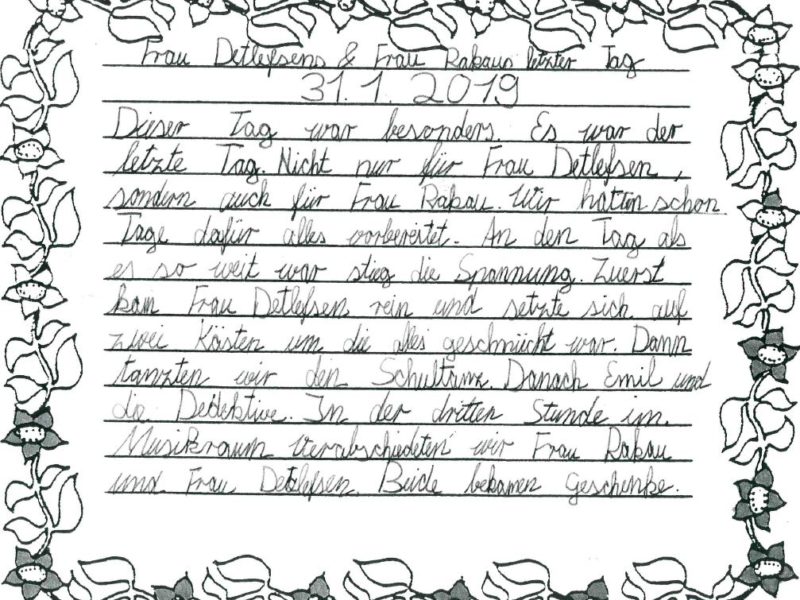 Frau Detlefsens & Frau Rakaus letzter Tag
31.1.2019
Dieser Tag war besonders. Es war der
letzte Tag. Nicht nur für Frau Detlefsen,
sondern auch für Frau Rakau. Wir hatten schon
Tage dafür alles vorbereitet. An den Tag als
es so weit war stieg die Spannung. Zuerst
kam Frau Detlefsen rein und setzte sich auf
zwei Kästen um die alles geschmückt war. Dann
tanzten wir den Schultanz. Danach Emil und
die Detektive. In der dritten Stunde im
Musikraum verabschiedeten wir Frau Rakau
und Frau Detlefsen. Beide bekamen Geschenke.